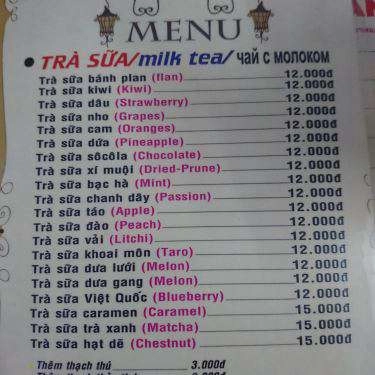 MENU
• TRÀ SỮA/milk tea/ ЧАЙ С МОЛОКОМ
Trà sữa bánh plan (flan) 12.000đ
Trà sữa kiwi (Kiwi) 12.000đ
Trà sữa dâu (Strawberry) 12.000đ
Trà sữa nho (Grapes) 12.000đ
Trà sữa cam (Oranges) 12.000đ
Trà sữa dứa (Pineapple) 12.000đ
Trà sữa sôcôla (Chocolate) 12.000đ
Trà sữa xí muội (Dried-Prune) 12.000đ
Trà sữa bạc hà (Mint) 12.000đ
Trà sữa chanh dây (Passion) 12.000đ
Trà sữa táo (Apple) 12.000đ
Trà sữa đào (Peach) 12.000đ
Trà sữa vải (Litchi) 12.000đ
Trà sữa khoai môn (Taro) 12.000đ
Trà sữa dưa lưới (Melon) 12.000đ
Trà sữa dưa gang (Melon) 12.000đ
Trà sữa Việt Quốc (Blueberry) 12.000đ
Trà sữa caramen (Caramel) 15.000đ
Trà sữa trà xanh (Matcha) 15.000đ
Trà sữa hạt dẽ (Chestnut) 15.000đ
Thêm thạch thú 3.000đ